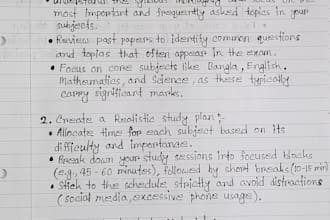 most important and frequently asked topics in your
subjects.
• Review past papers to identify common questions
and topics that often appear in the exam.
• Focus on core subjects like Bangla, English,
Mathematics, and Science, as these typically
carry significant marks.
2. Create a Realistic study plan:-
• Allocate time for each subject based on its
difficulty and importance.
• Break down your study sessions into focused blocks
(e.g., 45-60 minutes), followed by short breaks (10-15 min)
• Stick to the schedule strictly and avoid distractions
(social media, excessive phone usage).